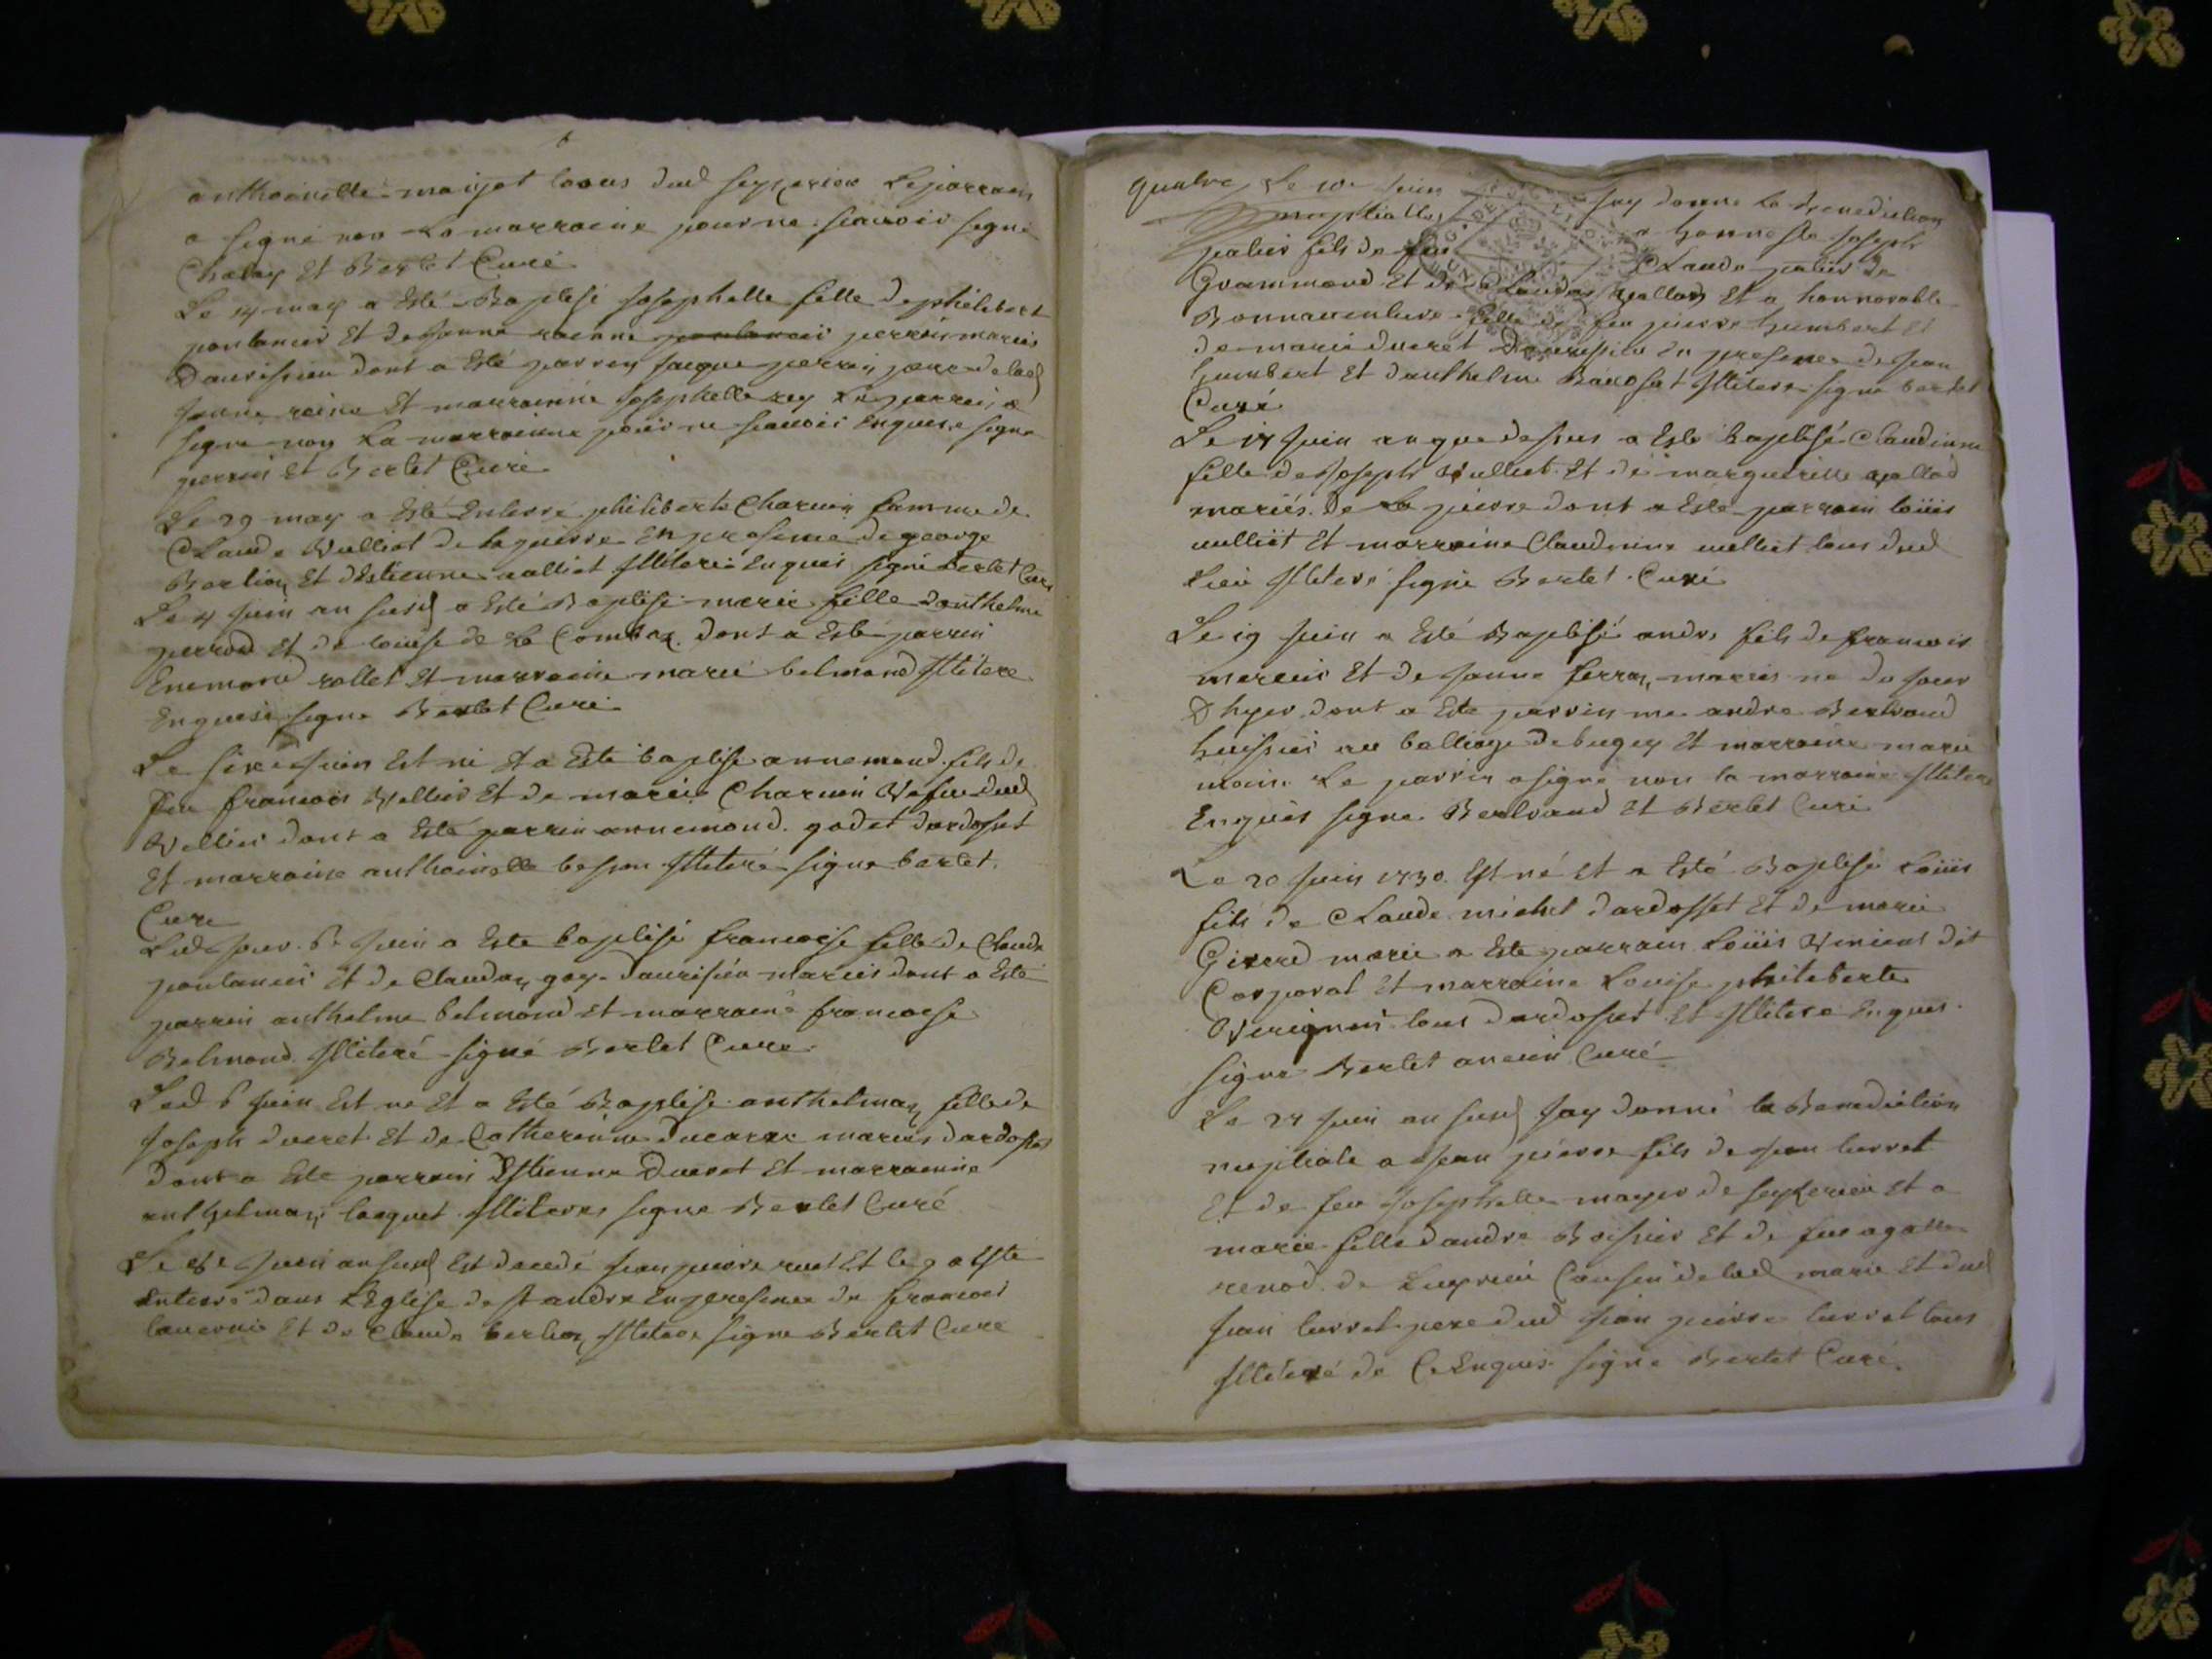 anthoinette maijet tous dud seyzerieu Le parrain
a signé non La marraine pour ne scavoir signe
Chalay Et Berlet Curé
Le 14 may a Esté Baptisé Josephette fille de philibert
pontanier Et de Jeanne reine perrin mariés
Daurissieu dont a Esté parrin Jacque perrin pere de lad
Jeanne reine Et marrainne Josephette rey Le parrein a
signe non La marrainne pour ne scavoir Enquise signe
perrin Et Berlet Curé
Le 29 may a Esté Enterré philiberte Charvin famme de
Claude Vulliot de la pierre En presence de george
Berlion Et d'Estienne vulliot Illiteré Enquis signé Berlet Curé
Le 4 Juin an susd a Esté Baptisé marie fille danthelme
perrod Et de louise de La Combaz dont a Esté parrin
Enemond rollet Et marraine marie belmond Illitere
Enquise signe Berlet Curé
Le sixe Juin Est né Et a Esté baptisé annemond fils de
feu francois Vellier Et de marie Charvin Vefue dud
Vellier dont a Esté parrin annemond godet dardosset
Et marraine anthoinette besson Illiteré signe berlet
Cure
Led jour 6e Juin a Este baptisé francoise fille de Claude
pontanier Et de Claudaz goy daurisieu mariés dont a Esté
parrin anthelme belmond Et marraine francoise
Belmond Illiteré signé Berlet Cure
Led 6 Juin Est ne Et a Esté Baptisé anthelmaz fille de
Joseph ducret Et de Catherinne ducarre mariés dardosset
dont a Este parrain Estienne Ducret Et marrainne
anthelmaz laquet Illiteres signe Berlet Curé
Le 8e Juin an susd Est decedé Jean pierre rud Et le 9 a Esté
Enterré dans L'Eglise de st andre En presence de francois
tavernie Et de Claude berlioz Illitere signe Berlet Cure
quatre Le 10e Juin Jay donne la Benediction
nuptialle a honneste Joseph
palier fils de feu Claude palier de
Grammond Et de Claudaz Et a honnorable
Bonnaventure fille de feu pierre humbert Et
de marie ducret Daurissieu En presence de Jean
humbert Et danthelme Illitere signe berlet
Curé
Le 17 Juin an que dessus a Esté baptisé Claudinne
fille de Joseph Vulliet Et de margueritte
mariés De La pierre dont a Esté parrain loüis
vulliet Et marraine Claudinne vulliet tous dud
Lieu Illiteré signé Berlet Curé
Le 19 Juin a Esté Baptisé andre fils de francois
mercier Et de Jeanne ferraz mariés né du jour
D'hyer dont a Este parrin me andre Bertrand
huissier au balliage de bugey Et marraine marie
Le parrin a signe non la marraine Illitere
Enquis signe Bertrand Et Berlet Curé
Le 20 Juin 1730 Est né Et a Esté Baptisé Loüis
fils de Claude michel dardosset Et de marie
Girerd marie a Este parrain Loüis Vincent dit
Corporal Et marraine Louise philiberte
tous dardosset Et Illitere Enquis
signe Berlet ancien Curé
Le 27 Juin an susd Jay donné la Benediction
nuptiale a Jean pierre fils de Jean turret
Et de feu Josephette mayer de seyzerieu Et a
marie fille dandre Boissier Et de feue agathe
renod de Luyrieu Cousin de lad marie Et dud
Jean turret pere dud Jean pierre turret tous
Illiteré de Ce Enquis signe Berlet Curé